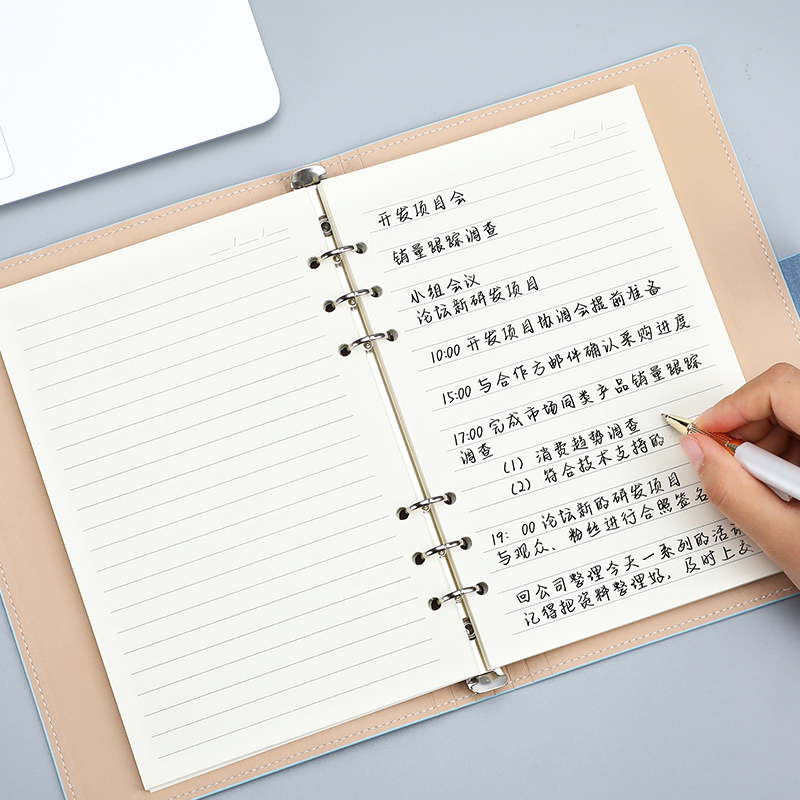 开发项目会
销量跟踪调查
小组会议
论坛新研发项目
10:00 开发项目协调会提前准备
15:00 与合作方邮件确认采购进度
17:00 完成市场同类产品销量跟踪
调查
(1) 消费趋势调查
(2) 符合技术支持的
19:00 论坛新的研发项目
与观众、粉丝进行合照签名
回公司整理今天一系列的活动
记得把资料整理好,及时上交